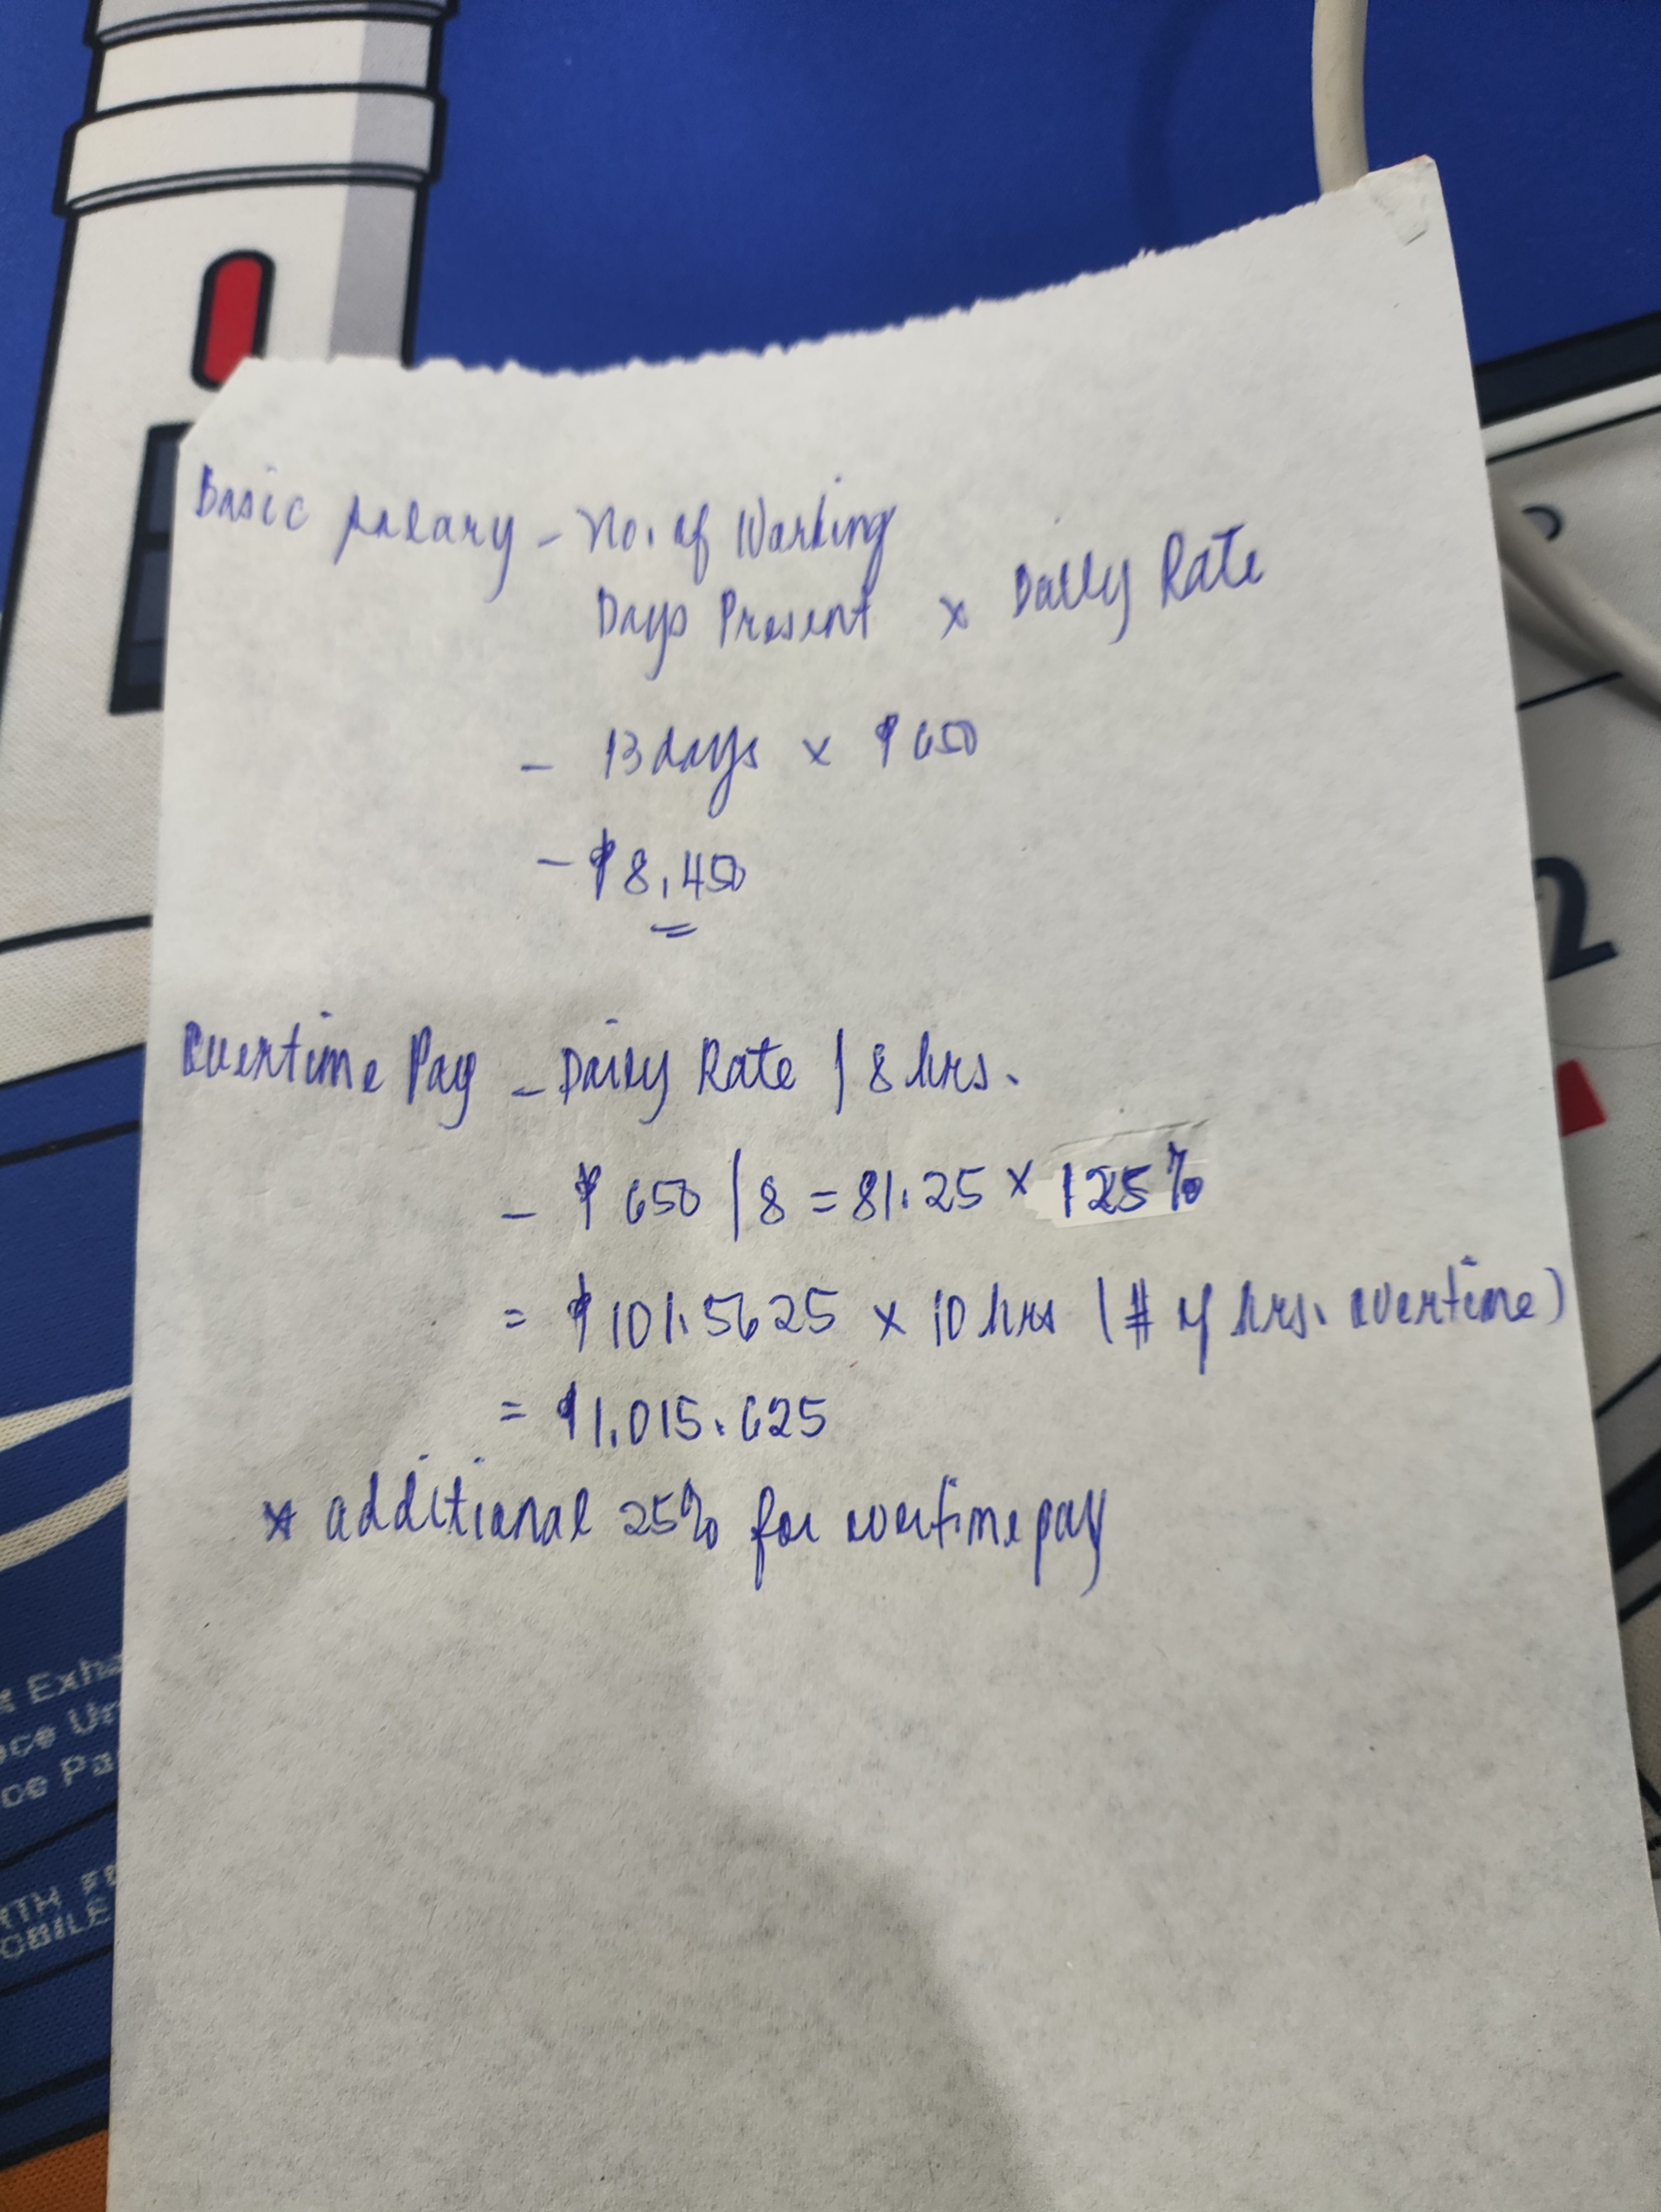 Basic salary - No. of Working
Days Present x Daily Rate
- 13 days x ₱650
- ₱8,450
Overtime Pay - Daily Rate / 8 hrs.
- ₱650 / 8 = 81.25 x 125%
= ₱101.5625 x 10 hrs (# of hrs. overtime)
= ₱1,015.625
* additional 25% for overtime pay
2